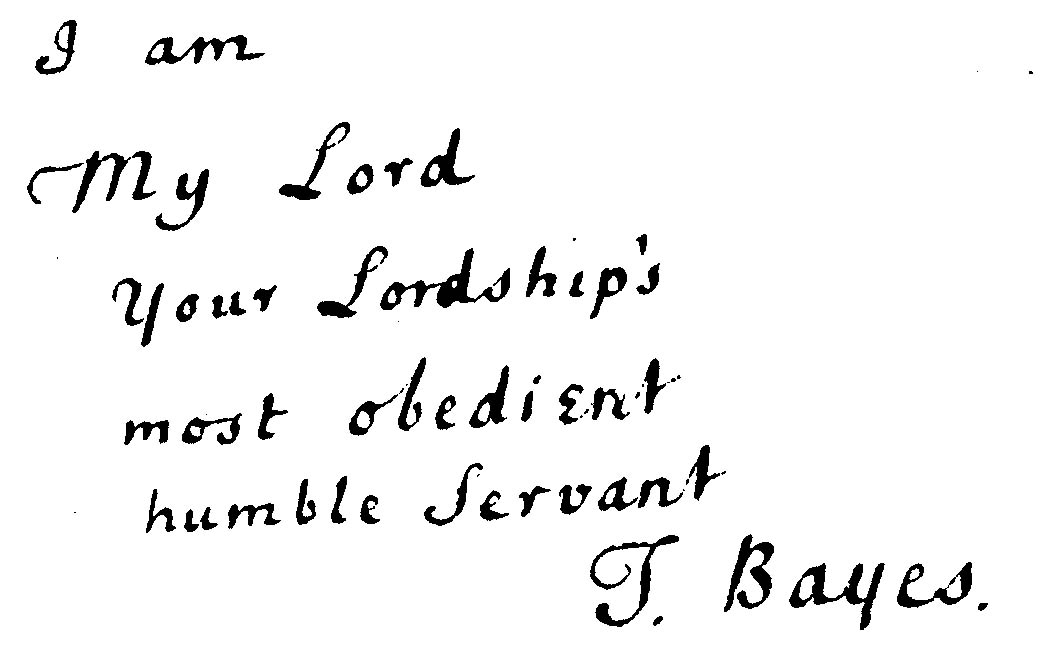 I am
My Lord
Your Lordship's
most obedient
humble Servant
T. Bayes.